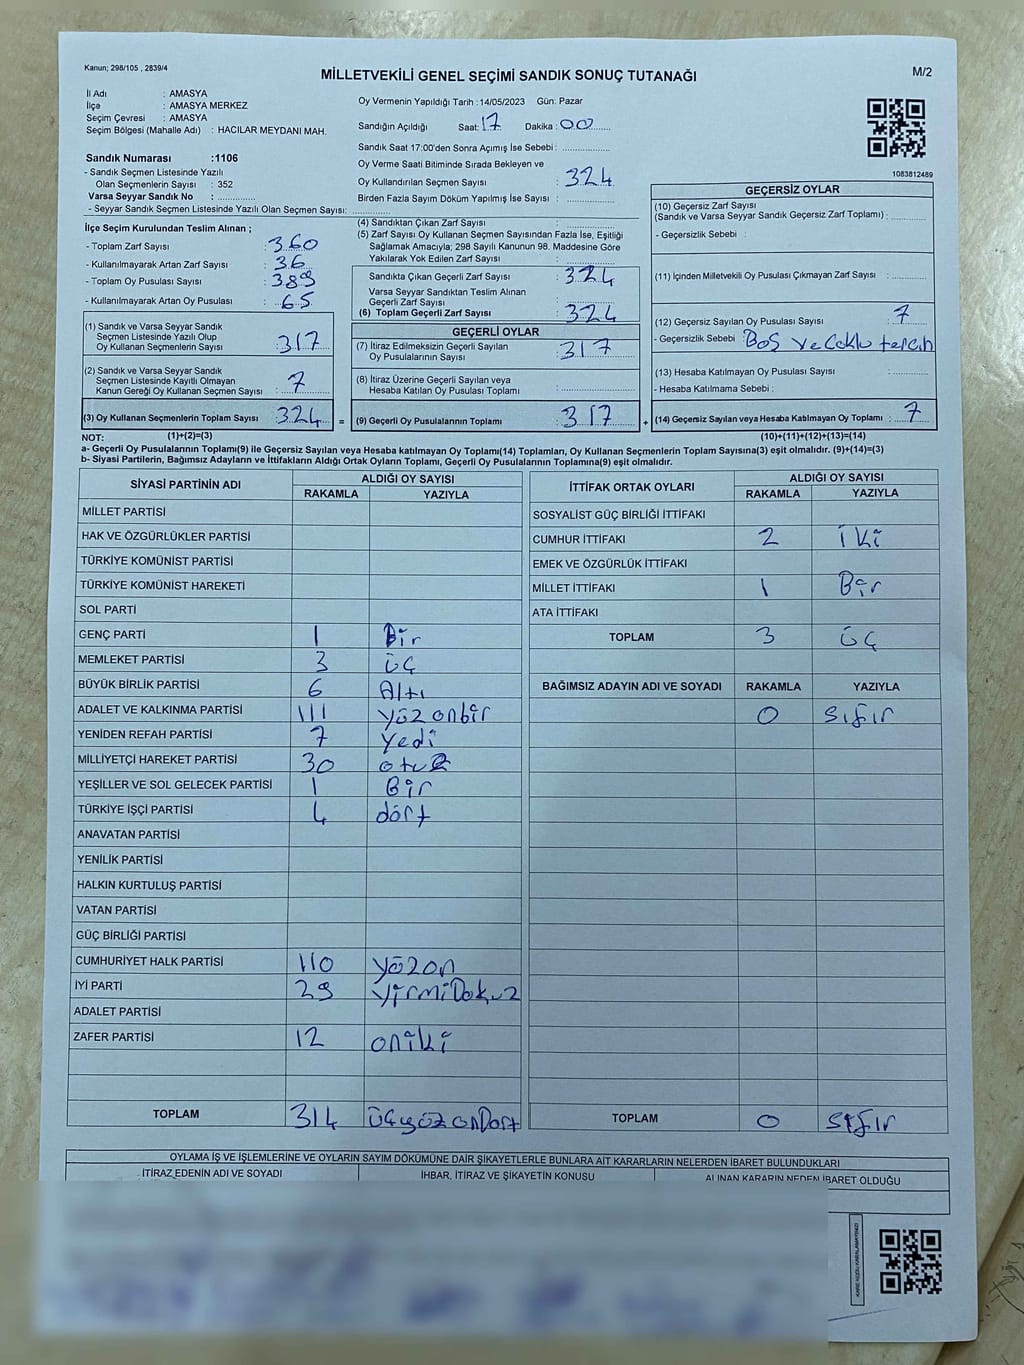 Kanun; 298/105 , 2839/4
MİLLETVEKİLİ GENEL SEÇİMİ SANDIK SONUÇ TUTANAĞI
M/2
İl Adı : AMASYA
İlçe : AMASYA MERKEZ
Seçim Çevresi : AMASYA
Seçim Bölgesi (Mahalle Adı) : HACILAR MEYDANI MAH.
Sandık Numarası :1106
- Sandık Seçmen Listesinde Yazılı
Olan Seçmenlerin Sayısı : 352
Varsa Seyyar Sandık No : ..............
- Seyyar Sandık Seçmen Listesinde Yazılı Olan Seçmen Sayısı: ..............
Oy Vermenin Yapıldığı Tarih :14/05/2023 Gün: Pazar
Sandığın Açıldığı Saat: 17 Dakika : 00
Sandık Saat 17:00'den Sonra Açımış İse Sebebi : ..............
Oy Verme Saati Bitiminde Sırada Bekleyen ve
Oy Kullandırılan Seçmen Sayısı : 324
Birden Fazla Sayım Döküm Yapılmış İse Sayısı : ..............
1083812489
İlçe Seçim Kurulundan Teslim Alınan ;
- Toplam Zarf Sayısı : 360
- Kullanılmayarak Artan Zarf Sayısı : 36
- Toplam Oy Pusulası Sayısı : 389
- Kullanılmayarak Artan Oy Pusulası : 65
(1) Sandık ve Varsa Seyyar Sandık
Seçmen Listesinde Yazılı Olup
Oy Kullanan Seçmenlerin Sayısı : 317
(2) Sandık ve Varsa Seyyar Sandık
Seçmen Listesinde Kayıtlı Olmayan
Kanun Gereği Oy Kullanan Seçmen Sayısı : 7
(3) Oy Kullanan Seçmenlerin Toplam Sayısı : 324 =
(1)+(2)=(3)
(4) Sandıktan Çıkan Zarf Sayısı :
(5) Zarf Sayısı Oy Kullanan Seçmen Sayısından Fazla İse, Eşitliği
Sağlamak Amacıyla; 298 Sayılı Kanunun 98. Maddesine Göre
Yakılarak Yok Edilen Zarf Sayısı :
Sandıkta Çıkan Geçerli Zarf Sayısı : 324
Varsa Seyyar Sandıktan Teslim Alınan
Geçerli Zarf Sayısı :
(6) Toplam Geçerli Zarf Sayısı : 324
GEÇERLİ OYLAR
(7) İtiraz Edilmeksizin Geçerli Sayılan
Oy Pusulalarının Sayısı : 317
(8) İtiraz Üzerine Geçerli Sayılan veya
Hesaba Katılan Oy Pusulası Toplamı :
(9) Geçerli Oy Pusulalarının Toplamı : 317 +
GEÇERSİZ OYLAR
(10) Geçersiz Zarf Sayısı
(Sandık ve Varsa Seyyar Sandık Geçersiz Zarf Toplamı) : ..............
- Geçersizlik Sebebi :
(11) İçinden Milletvekili Oy Pusulası Çıkmayan Zarf Sayısı : ..............
(12) Geçersiz Sayılan Oy Pusulası Sayısı : 7
- Geçersizlik Sebebi : Boş ve Çoklu tercih
(13) Hesaba Katılmayan Oy Pusulası Sayısı : ..............
- Hesaba Katılmama Sebebi :
(14) Geçersiz Sayılan veya Hesaba Katılmayan Oy Toplamı : 7
(10)+(11)+(12)+(13)=(14)
NOT:
a- Geçerli Oy Pusulalarının Toplamı(9) ile Geçersiz Sayılan veya Hesaba katılmayan Oy Toplamı(14) Toplamları, Oy Kullanan Seçmenlerin Toplam Sayısına(3) eşit olmalıdır. (9)+(14)=(3)
b- Siyasi Partilerin, Bağımsız Adayların ve İttifakların Aldığı Ortak Oyların Toplamı, Geçerli Oy Pusulalarının Toplamına(9) eşit olmalıdır.
SİYASİ PARTİNİN ADI ALDIĞI OY SAYISI
RAKAMLA YAZIYLA
MİLLET PARTİSİ
HAK VE ÖZGÜRLÜKLER PARTİSİ
TÜRKİYE KOMÜNİST PARTİSİ
TÜRKİYE KOMÜNİST HAREKETİ
SOL PARTİ
GENÇ PARTİ 1 Bir
MEMLEKET PARTİSİ 3 üç
BÜYÜK BİRLİK PARTİSİ 6 Altı
ADALET VE KALKINMA PARTİSİ 111 yüzonbir
YENİDEN REFAH PARTİSİ 7 yedi
MİLLİYETÇİ HAREKET PARTİSİ 30 otuz
YEŞİLLER VE SOL GELECEK PARTİSİ 1 Bir
TÜRKİYE İŞÇİ PARTİSİ 4 dört
ANAVATAN PARTİSİ
YENİLİK PARTİSİ
HALKIN KURTULUŞ PARTİSİ
VATAN PARTİSİ
GÜÇ BİRLİĞİ PARTİSİ
CUMHURİYET HALK PARTİSİ 110 yüzon
İYİ PARTİ 29 yirmiDokuz
ADALET PARTİSİ
ZAFER PARTİSİ 12 oniki
TOPLAM 314 üçyüzonDört
İTTİFAK ORTAK OYLARI ALDIĞI OY SAYISI
RAKAMLA YAZIYLA
SOSYALİST GÜÇ BİRLİĞİ İTTİFAKI
CUMHUR İTTİFAKI 2 iki
EMEK VE ÖZGÜRLÜK İTTİFAKI
MİLLET İTTİFAKI 1 Bir
ATA İTTİFAKI
TOPLAM 3 üç
BAĞIMSIZ ADAYIN ADI VE SOYADI RAKAMLA YAZIYLA
0 sıfır
TOPLAM 0 sıfır
OYLAMA İŞ VE İŞLEMLERİNE VE OYLARIN SAYIM DÖKÜMÜNE DAİR ŞİKAYETLERLE BUNLARA AİT KARARLARIN NELERDEN İBARET BULUNDUKLARI
İTİRAZ EDENİN ADI VE SOYADI İHBAR, İTİRAZ VE ŞİKAYETİN KONUSU ALINAN KARARIN NEDEN İBARET OLDUĞU